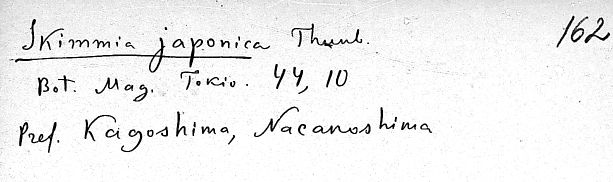 Skimmia japonica Thunb. 162
Bot. Mag. Tokio. 44, 10
Pref. Kagoshima, Nacanoshima